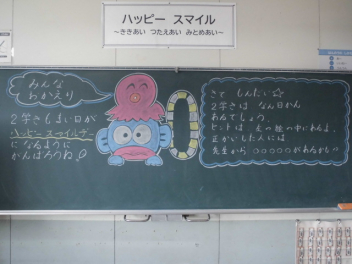 ハッピー スマイル
～ききあい つたえあい みとめあい～
みんな
わかえり
2学きしまい日が
ハッピースマイルデー
になるように
がんばろうね
さて しんだい☆
2学きは なん日かん
あるでしょう。
ヒントは 左の絵の中にあるよ。
正かいした人には
先生から ○○○○○があるかも!!